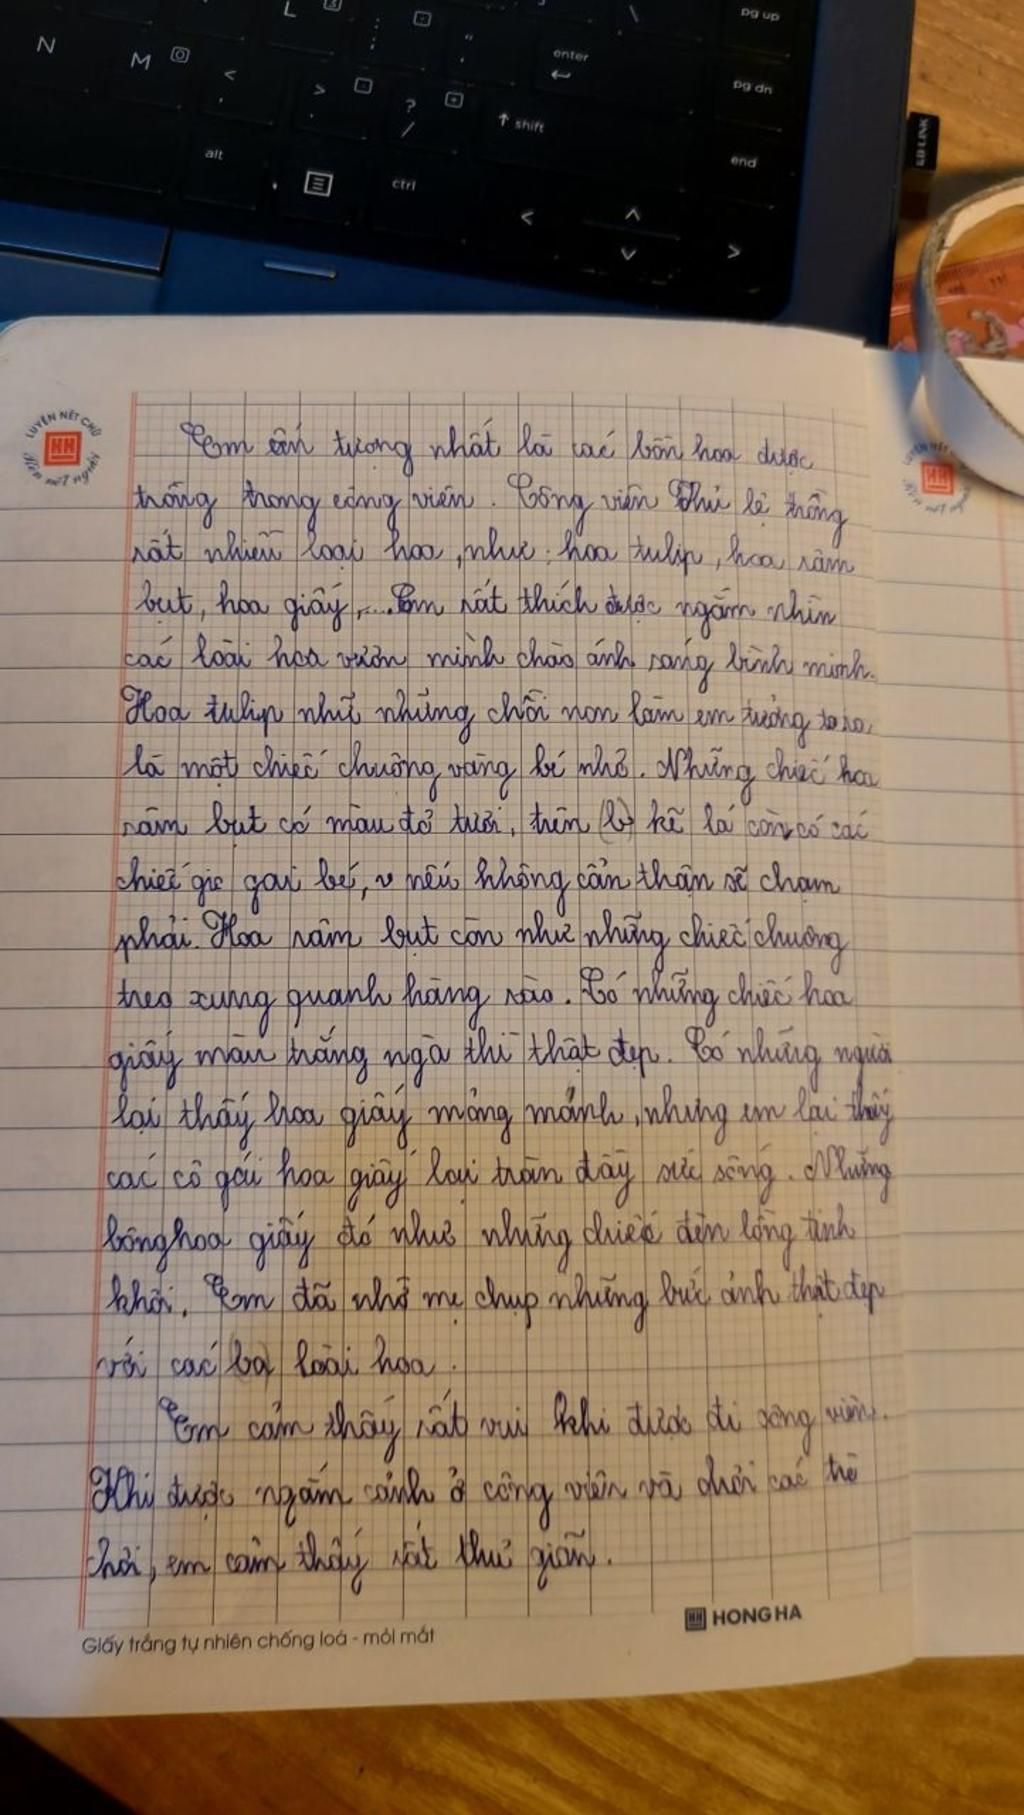 L
pg up
N
M
enter
pg dn
shift
alt
ctrl
end
LUYỆN NÉT CHỮ
RÈN NẾT NGƯỜI
HH
Em ấn tượng nhất là các bồn hoa được
trồng trong công viên. Công viên Thủ lệ trồng
rất nhiều loại hoa, như: hoa tulip, hoa râm
bụt, hoa giấy,... Em rất thích được ngắm nhìn
các loài hoa vươn mình chào ánh sáng bình minh.
Hoa tulip như những chồi non làm em tưởng
là một chiếc chuông vàng bé nhỏ. Những chiếc hoa
râm bụt có màu đỏ tươi, trên (b) kẽ lá còn có các
chiếc gic gai bé, v nếu không cẩn thận sẽ chạm
phải. Hoa râm bụt còn như những chiếc chuông
treo xung quanh hàng rào. Có những chiếc hoa
giấy màu trắng ngà thì thật đẹp. Có những người
lại thấy hoa giấy mỏng mảnh, nhưng em lại thấy
các cô gái hoa giấy lại tràn đầy sức sống. Những
bông hoa giấy đó như những chiếc đèn lồng tinh
khôi. Em đã nhờ mẹ chụp những bức ảnh thật đẹp
với các (ba) loài hoa.
Em cảm thấy rất vui khi được đi công viên.
Khi được ngắm cảnh ở công viên và chơi các trò
chơi, em cảm thấy rất thư giãn.
HH HONG HA
Giấy trắng tự nhiên chống loá - mỏi mắt